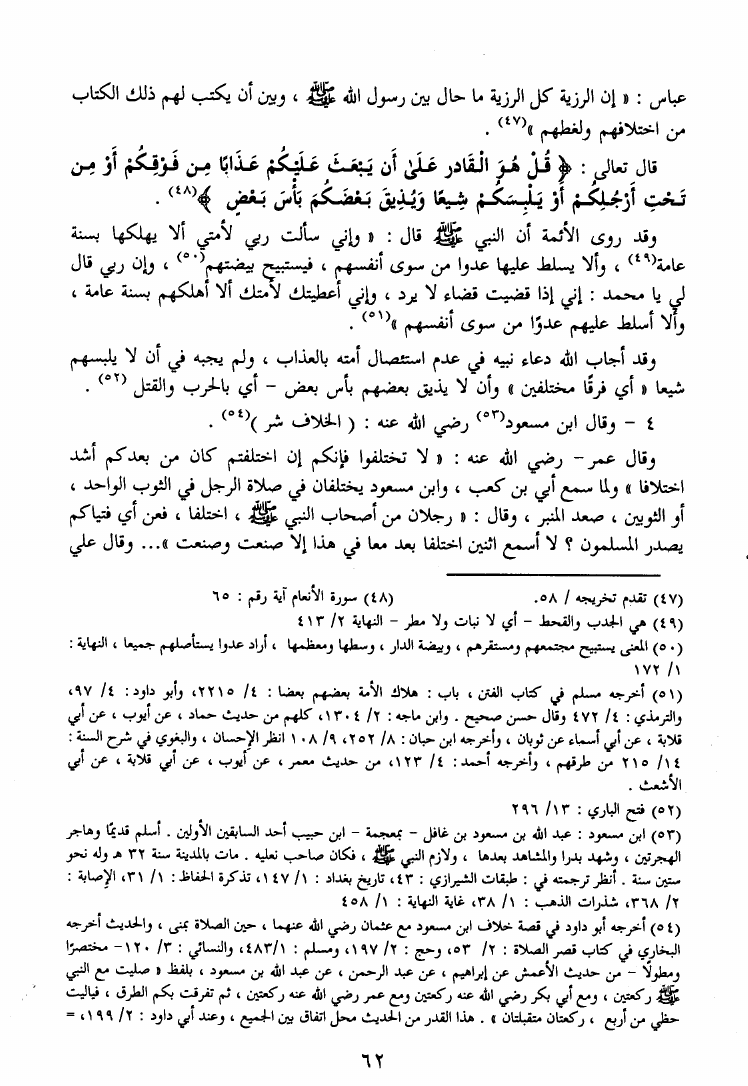 عباس : « إن الرزية كل الرزية ما حال بين رسول الله ﷺ ، وبين أن يكتب لهم ذلك الكتاب
من اختلافهم ولغطهم »(٤٧) .
قال تعالى : ﴿ قُلْ هُوَ الْقَادِر عَلَىٰ أَن يَبْعَثَ عَلَيْكُمْ عَذَابًا مِن فَوْقِكُمْ أَوْ مِن
تَحْتِ أَرْجُلِكُمْ أَوْ يَلْبِسَكُمْ شِيعًا وَيُذِيقَ بَعْضَكُم بَأْسَ بَعْضٍ ﴾(٤٨) .
وقد روى الأئمة أن النبي ﷺ قال : « وإني سألت ربي لأمتي ألا يهلكها بسنة
عامة(٤٩) ، وألا يسلط عليها عدوا من سوى أنفسهم ، فيستبيح بيضتهم(٥٠) ، وإن ربي قال
لي يا محمد : إني إذا قضيت قضاء لا يرد ، وإني أعطيتك لأمتك ألا أهلكهم بسنة عامة ،
وألا أسلط عليهم عدوًا من سوى أنفسهم »(٥١) .
وقد أجاب الله دعاء نبيه في عدم استئصال أمته بالعذاب ، ولم يجبه في أن لا يلبسهم
شيعا « أي فرقًا مختلفين » وأن لا يذيق بعضهم بأس بعض – أي بالحرب والقتل (٥٢) .
٤ – وقال ابن مسعود(٥٣) رضي الله عنه : ( الخلاف شر )(٥٤) .
وقال عمر – رضي الله عنه : « لا تختلفوا فإنكم إن اختلفتم كان من بعدكم أشد
اختلافا » ولما سمع أبي بن كعب ، وابن مسعود يختلفان في صلاة الرجل في الثوب الواحد ،
أو الثوبين ، صعد المنبر ، وقال : « رجلان من أصحاب النبي ﷺ ، اختلفا ، فعن أي فتياكم
يصدر المسلمون ؟ لا أسمع اثنين اختلفا بعد معا في هذا إلا صنعت وصنعت »... وقال علي
(٤٧) تقدم تخريجه / ٥٨. (٤٨) سورة الأنعام آية رقم : ٦٥
(٤٩) هي الجدب والقحط – أي لا نبات ولا مطر – النهاية ٢/ ٤١٣
(٥٠) المعنى يستبيح مجتمعهم ومستقرهم ، وبيضة الدار ، وسطها ومعظمها ، أراد عدوا يستأصلهم جميعا ، النهاية :
١/ ١٧٢
(٥١) أخرجه مسلم في كتاب الفتن ، باب : هلاك الأمة بعضهم بعضا : ٤/ ٢٢١٥، وأبو داود: ٤/ ٩٧،
والترمذي : ٤/ ٤٧٢ وقال حسن صحيح . وابن ماجه : ٢/ ١٣٠٤، كلهم من حديث حماد ، عن أيوب ، عن أبي
قلابة ، عن أبي أسماء عن ثوبان ، وأخرجه ابن حبان : ٨/ ٢٥٢، ٩/ ١٠٨ انظر الإحسان ، والبغوي في شرح السنة :
١٤/ ٢١٥ من طرقهم ، وأخرجه أحمد : ٤/ ١٢٣، من حديث معمر ، عن أيوب ، عن أبي قلابة ، عن أبي
الأشعث .
(٥٢) فتح الباري : ١٣/ ٢٩٦
(٥٣) ابن مسعود : عبد الله بن مسعود بن غافل – بمعجمة – ابن حبيب أحد السابقين الأولين . أسلم قديمًا وهاجر
الهجرتين ، وشهد بدرا والمشاهد بعدها ، ولازم النبي ﷺ ، فكان صاحب نعليه . مات بالمدينة سنة ٣٢ هـ وله نحو
ستين سنة . أنظر ترجمته في : طبقات الشيرازي : ٤٣، تاريخ بغداد : ١/ ١٤٧، تذكرة الحفاظ: ١/ ٣١، الإصابة :
٢/ ٣٦٨، شذرات الذهب : ١/ ٣٨، غاية النهاية : ١/ ٤٥٨
(٥٤) أخرجه أبو داود في قصة خلاف ابن مسعود مع عثمان رضي الله عنهما ، حين الصلاة بمنى ، والحديث أخرجه
البخاري في كتاب قصر الصلاة : ٢/ ٥٣، وحج : ٢/ ١٩٧، ومسلم : ١/ ٤٨٣، والنسائي : ٣/ ١٢٠– مختصرًا
ومطولًا – من حديث الأعمش عن إبراهيم ، عن عبد الرحمن ، عن عبد الله بن مسعود ، بلفظ « صليت مع النبي
ﷺ ركعتين ، ومع أبي بكر رضي الله عنه ركعتين ومع عمر رضي الله عنه ركعتين ، ثم تفرقت بكم الطرق ، فياليت
حظي من أربع ، ركعتان متقبلتان » . هذا القدر من الحديث محل اتفاق بين الجميع ، وعند أبي داود : ٢/ ١٩٩، =
٦٢